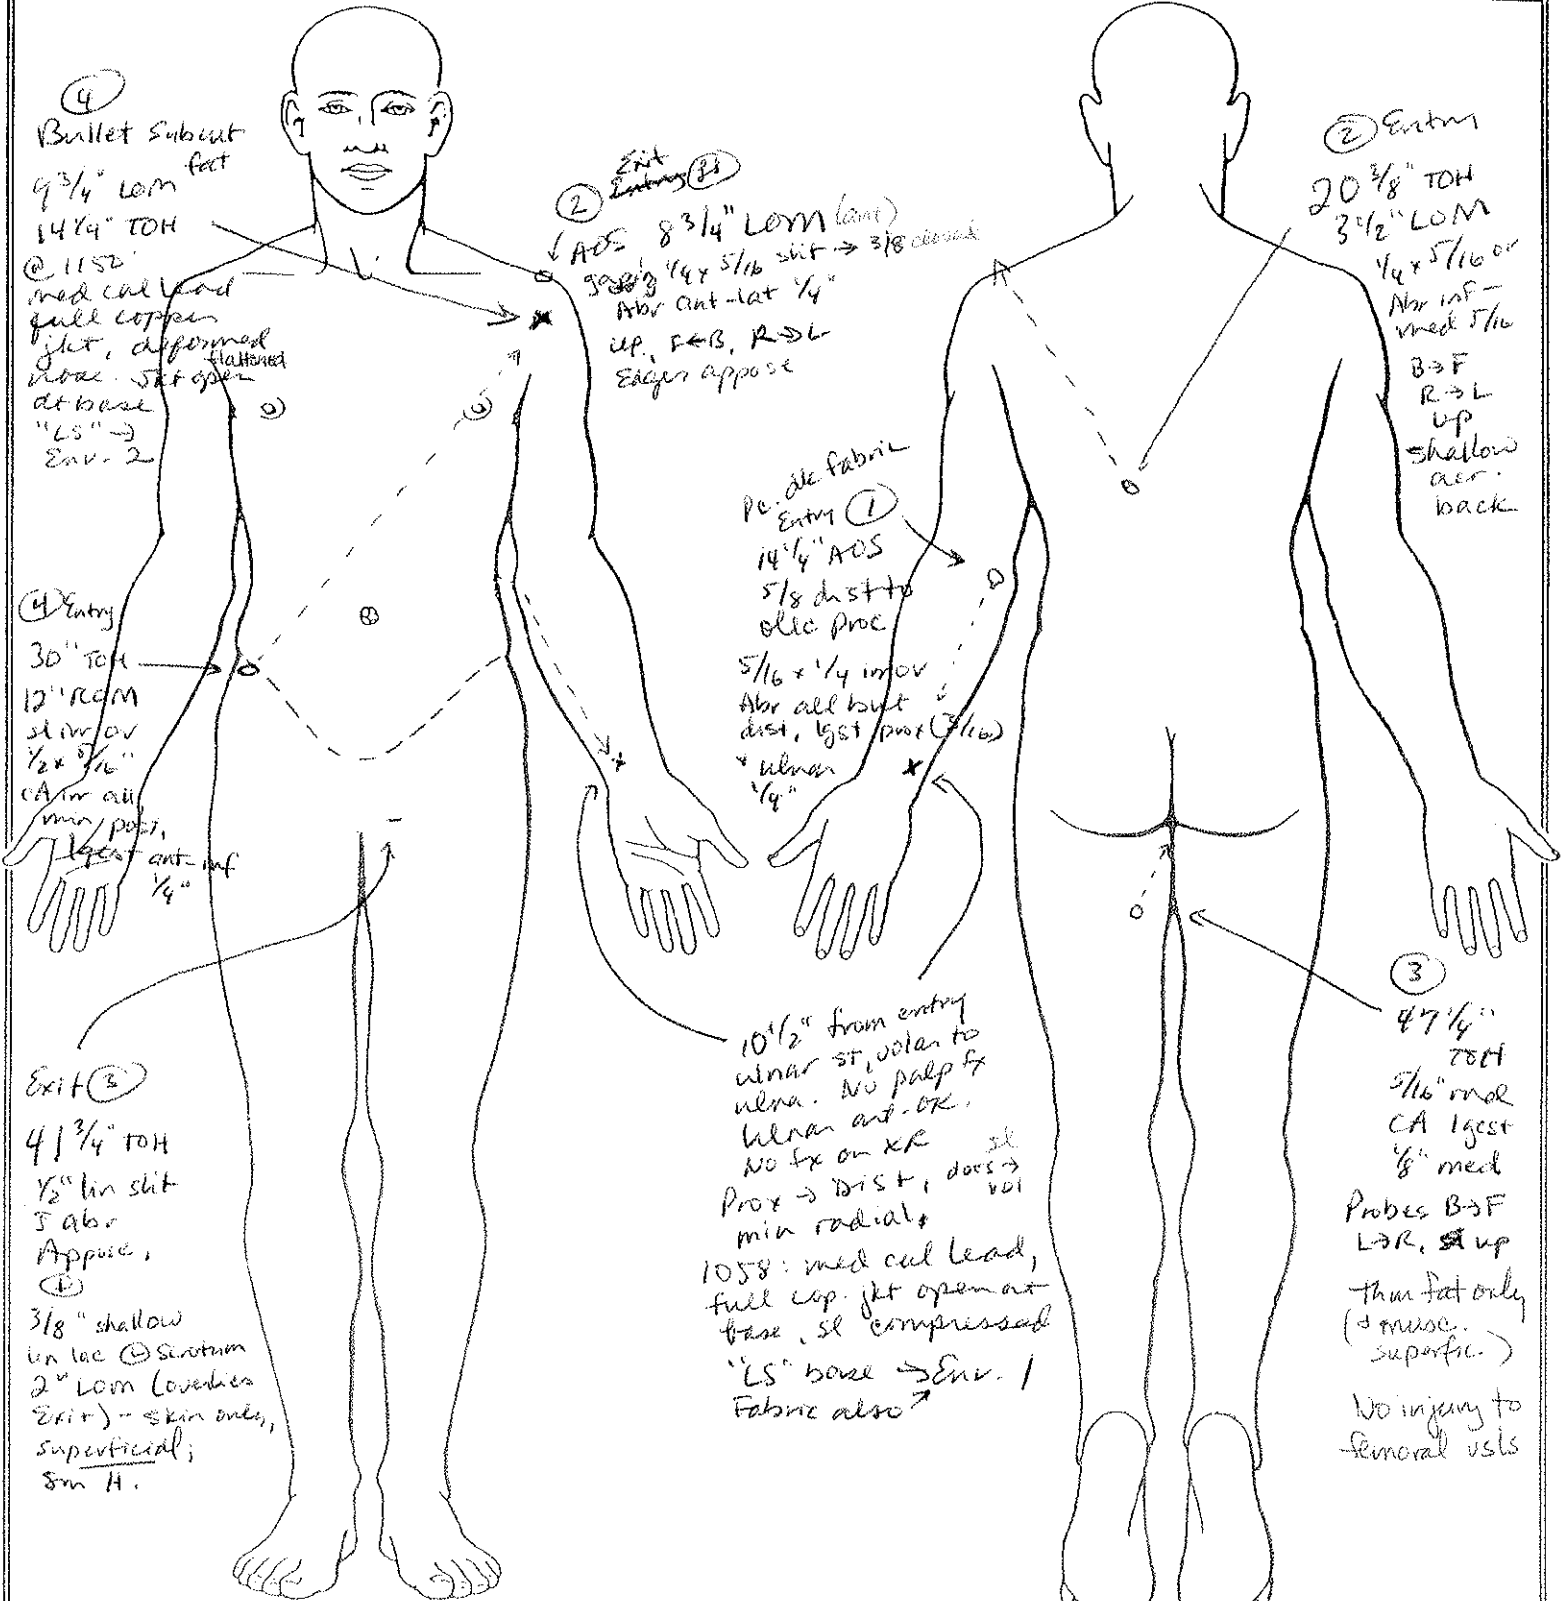 ④
Bullet Subcut
fat
9 3/4" LOM
14 1/4" TOH
@ 1152:
med cal lead
full copper
jkt, deformed
flattened
nose. Jkt open
at base
"LS" →
Env. 2
④ Entry
30" TOH
12" ROM
sl irr ov
1/2 x 5/16"
CA irr all
min post,
lgest ant-inf
1/4"
Exit ③
41 3/4" TOH
1/2" lin slit
abr
Appose.
3/8" shallow
lin lac scrotum
2" LOM (overlies
Exit) - skin only,
superficial;
Sm H.
Exit
② Entry
AOS 8 3/4" LOM (ant)
gaping 1/4 x 5/16 slit → 3/8 closed
Abr ant-lat 1/4"
up, F←B, R→L
Edges appose
Pc. dk fabric
Entry ①
14 1/4" AOS
5/8 dist to
olec proc
5/16 x 1/4 irr ov
Abr all but
dist, lgst prox (3/16)
+ ulnar
1/4"
10 1/2" from entry
ulnar st, volar to
ulna. No palp fx
ulna. Ulnar art. OK.
No fx on XR
Prox → Dist, dors → sl
vol
min radial,
1058: med cal lead,
full cop. jkt open at
base, sl compressed
"LS" base → Env. 1
Fabric also ↗
② Entry
20 3/8" TOH
3 1/2" LOM
1/4 x 5/16 ov
Abr inf-
med 5/16
B→F
R→L
up
shallow
acr.
back
③
47 1/4"
TOH
5/16" rnd
CA lgest
1/8" med
Probes B→F
L→R, up
thru fat only
(+ musc.
superfic.)
No injury to
femoral vsls